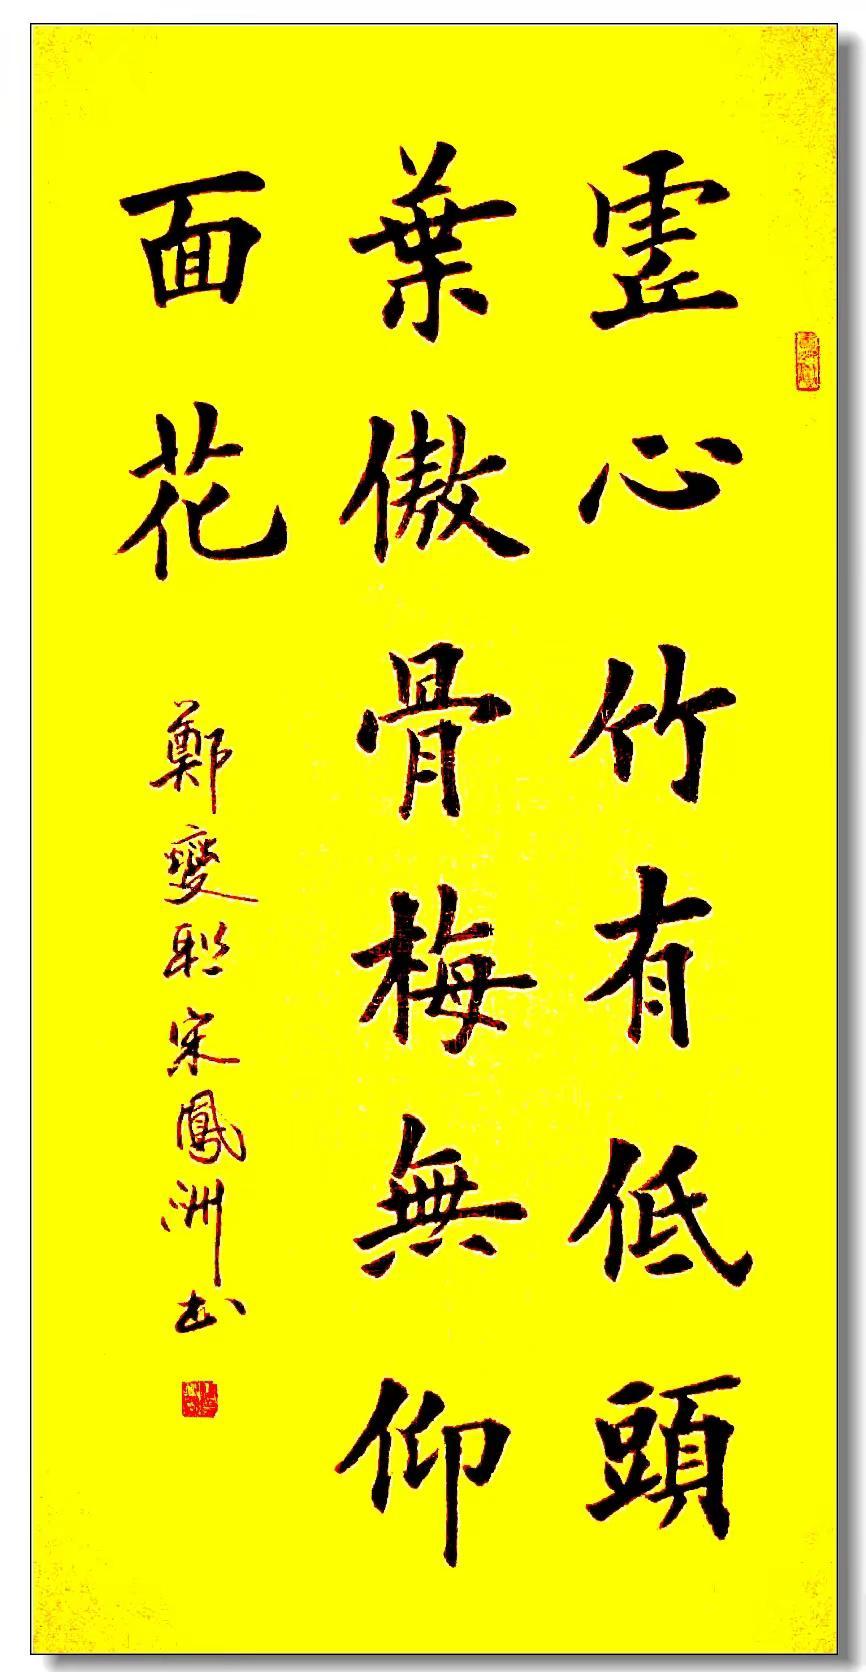 虛心竹有低頭
葉傲骨梅無仰
面花
鄭燮聯宋鳳洲書